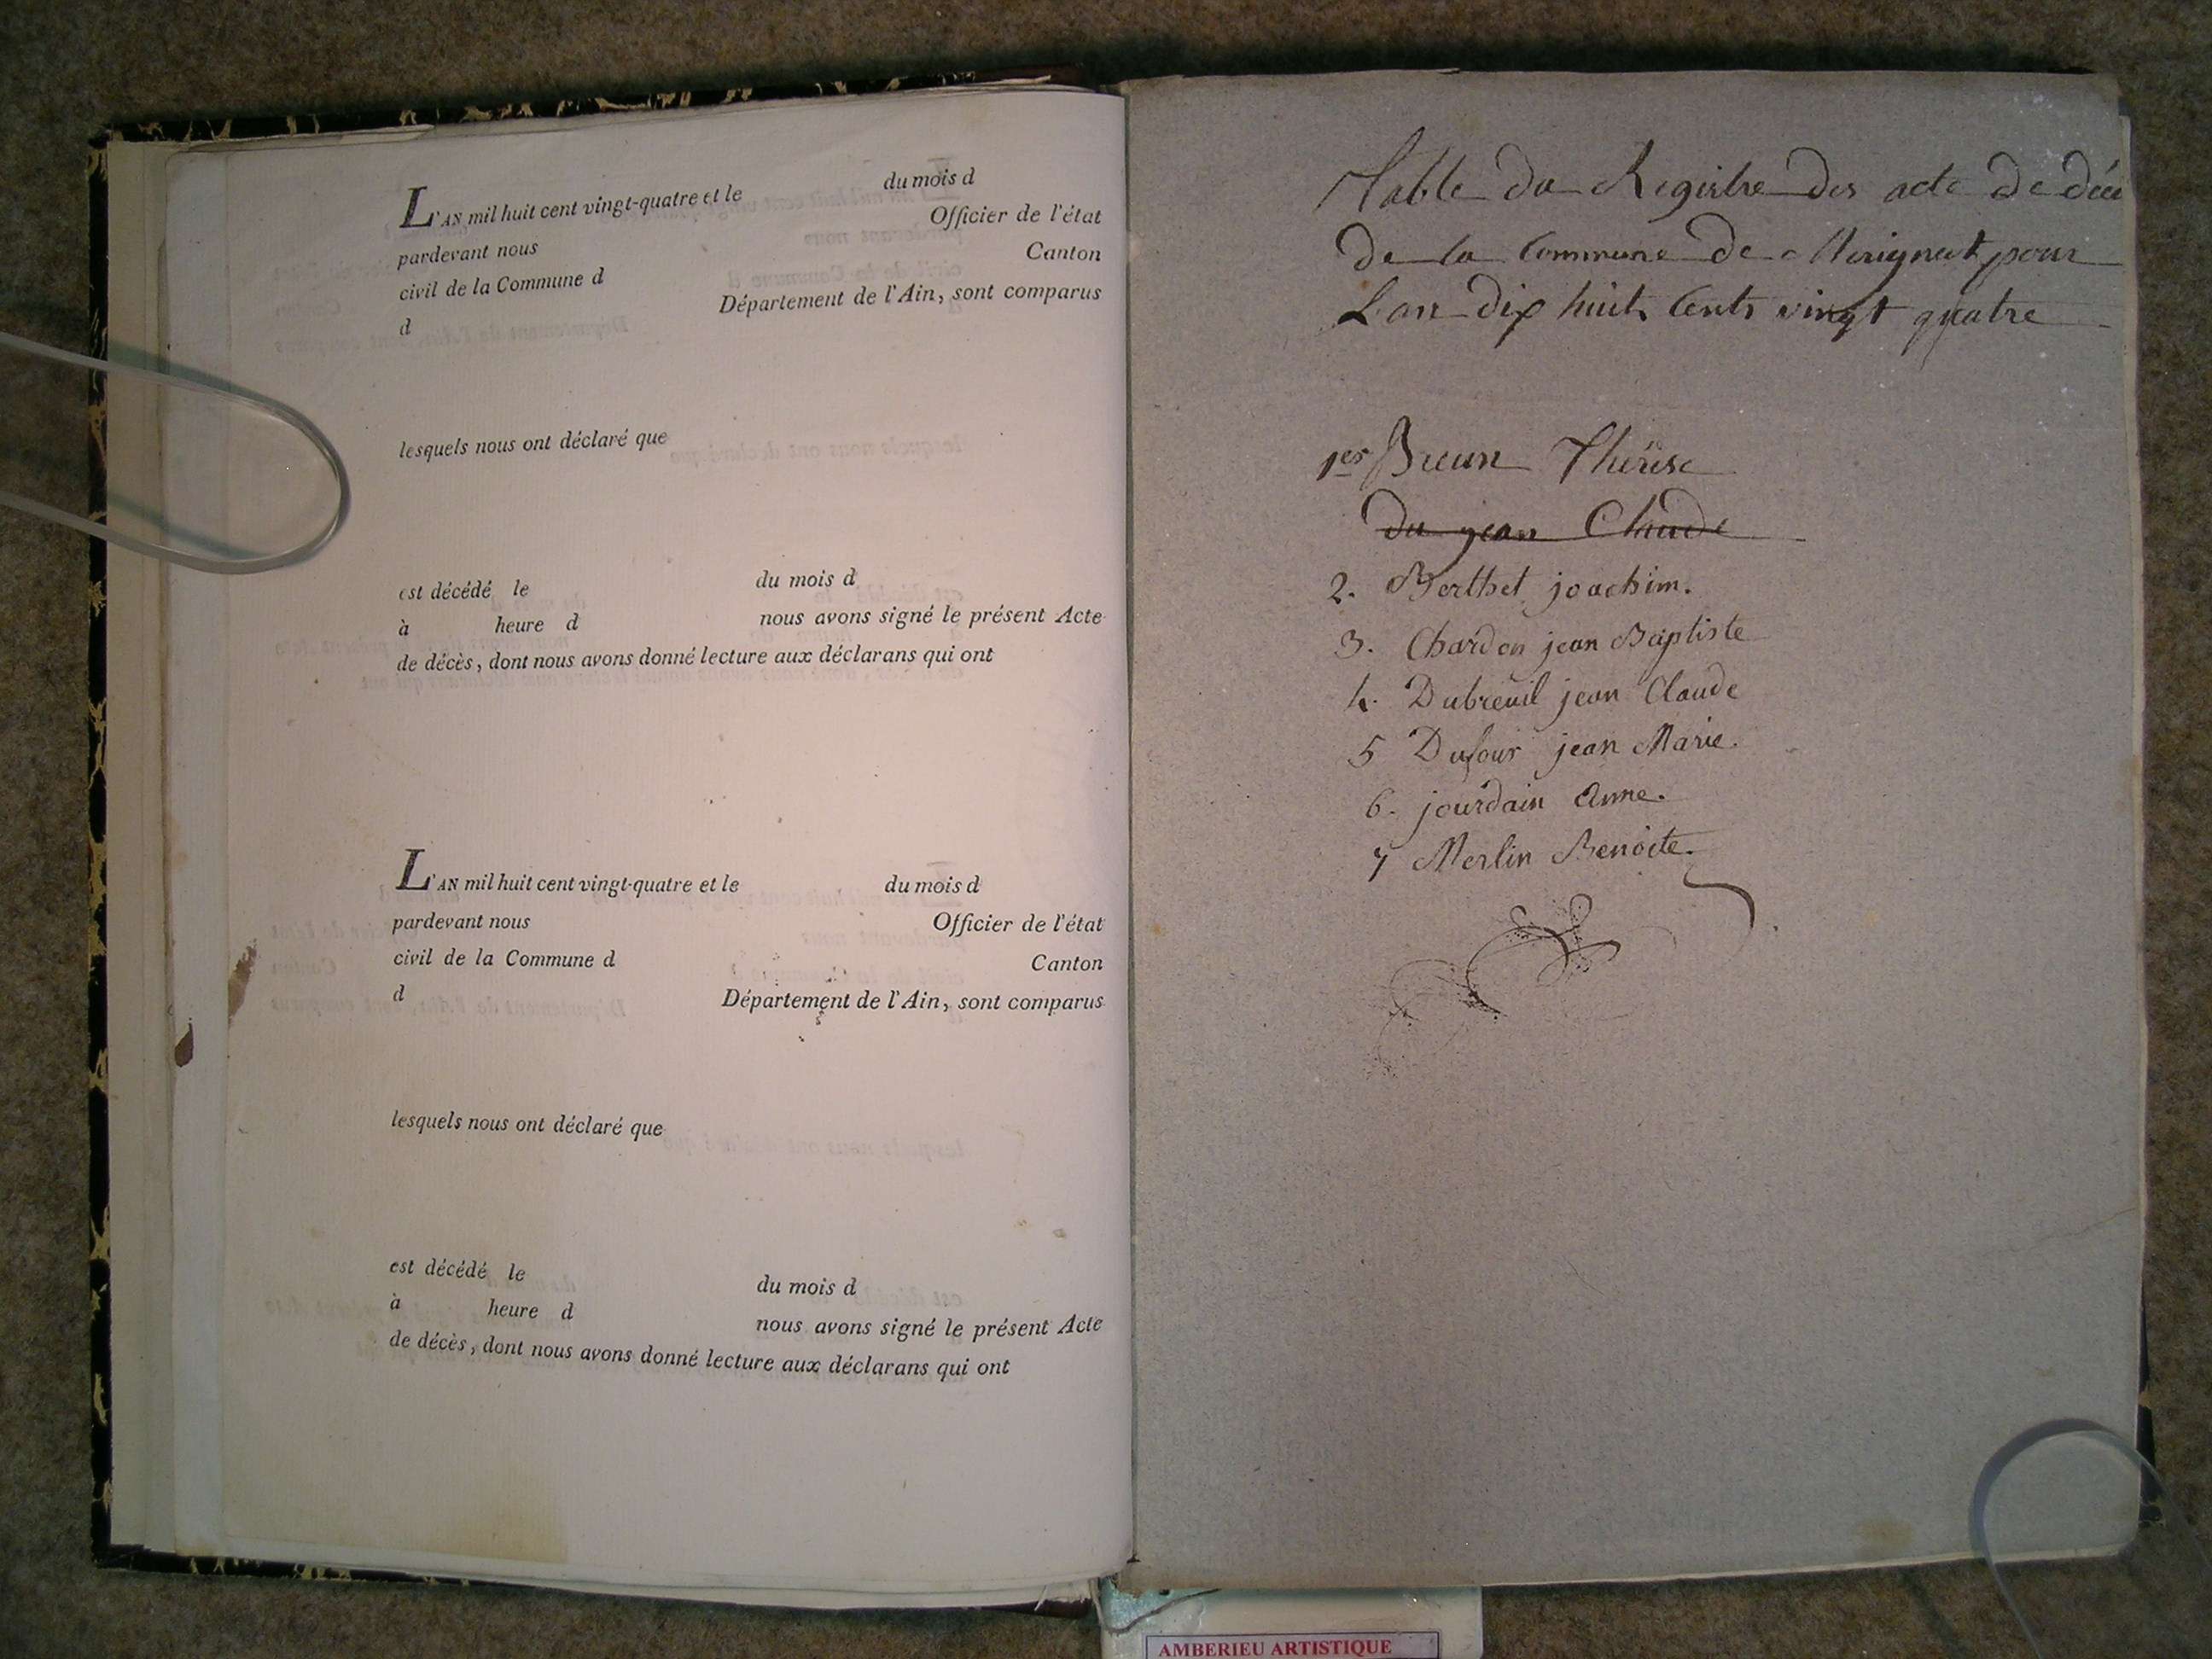 L'AN mil huit cent vingt-quatre et le du mois d
pardevant nous Officier de l'état
civil de la Commune d Canton
d Département de l'Ain, sont comparus
lesquels nous ont déclaré que
est décédé le du mois d
à heure d nous avons signé le présent Acte
de décès, dont nous avons donné lecture aux déclarans qui ont
L'AN mil huit cent vingt-quatre et le du mois d
pardevant nous Officier de l'état
civil de la Commune d Canton
d Département de l'Ain, sont comparus
lesquels nous ont déclaré que
est décédé le du mois d
à heure d nous avons signé le présent Acte
de décès, dont nous avons donné lecture aux déclarans qui ont
Table du Registre des acte de décé
de la Commune de Merignat pour
L'an dix huit Cents vingt quatre
1er Breun Thérèse
du jean Claude
2. Berthet joachim.
3. Chardon jean Baptiste
4. Dubreuil jean Claude
5 Dufour jean Marie.
6. jourdain Anne.
7 Merlin Benoite.
AMBERIEU ARTISTIQUE